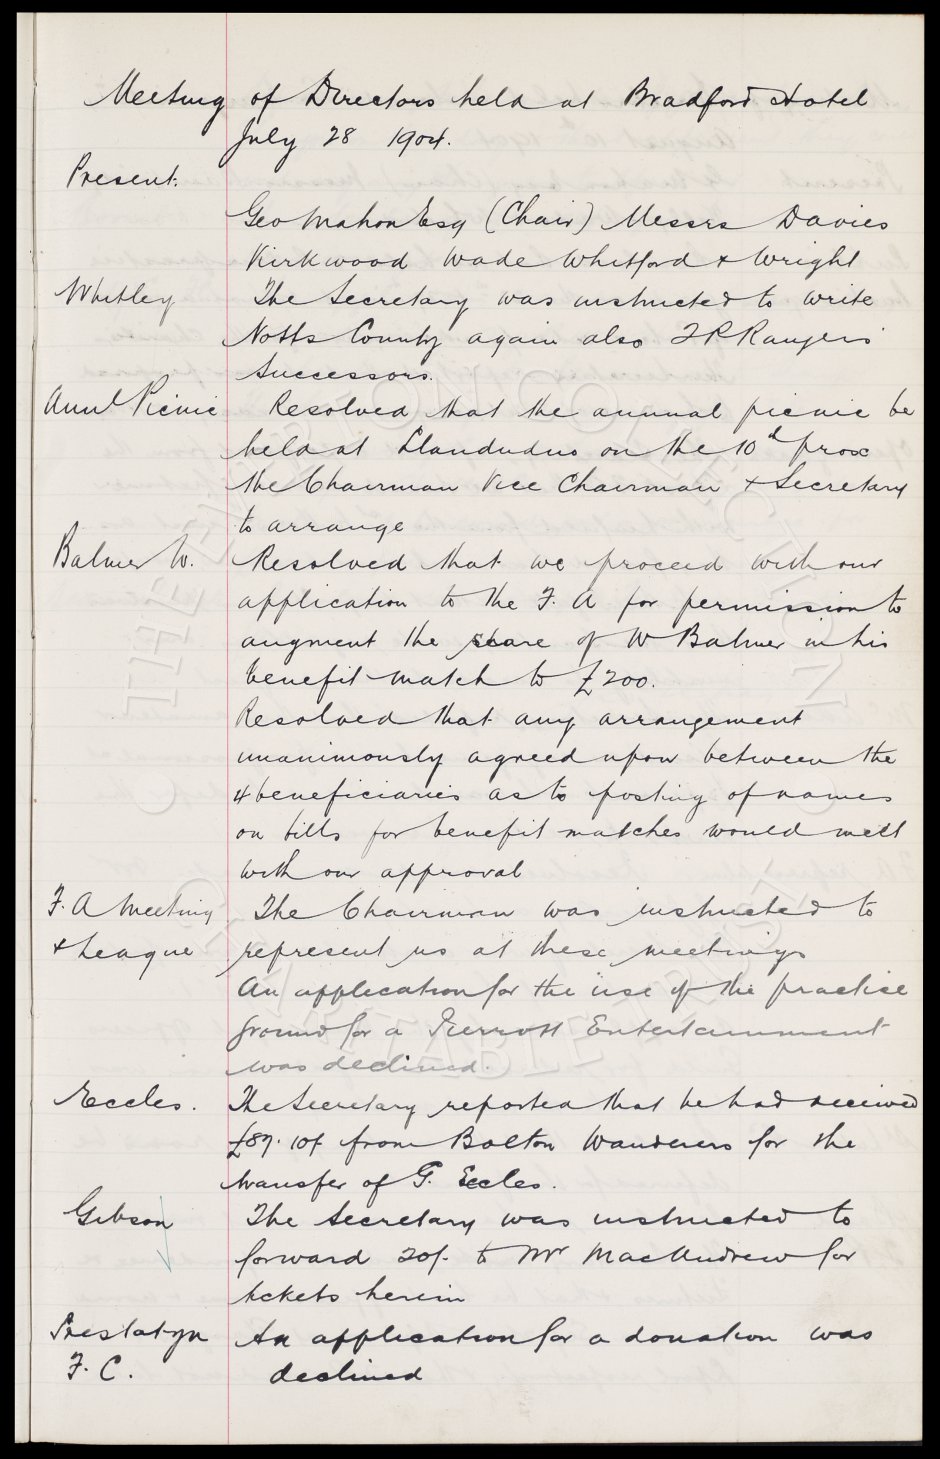 Meeting of Directors held at Bradford Hotel
July 28 1904.
Present.
Geo Mahon Esq (Chair) Messrs Davies
Kirkwood Wade Whitford & Wright
Whitley The Secretary was instructed to write
Notts County again also Q P Rangers
Successors.
Annl Picnic Resolved that the annual picnic be
held at Llandudno on the 10th prox
the Chairman Vice Chairman & Secretary
to arrange
Balmer W. Resolved that we proceed with our
application to the F. A for permission to
augment the share of W Balmer in his
benefit match to £200.
Resolved that any arrangement
unanimously agreed upon between the
4 beneficiaries as to posting of names
on bills for benefit matches would meet
with our approval
F. A Meeting The Chairman was instructed to
& League represent us at these meetings
An application for the use of the practice
ground for a Pierrott Entertainment
was declined.
Eccles. The Secretary reported that he had received
£87. 10/- from Bolton Wanderers for the
transfer of G. Eccles.
Gibson The Secretary was instructed to
forward 20/- to Mr MacAndrew for
tickets herein
Prestatyn An application for a donation was
F. C. declined
THE EVERTON COLLECTION
CHARITABLE TRUST